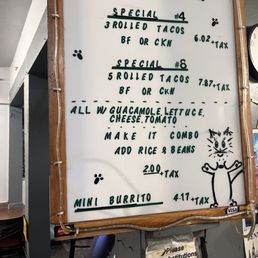 SPECIAL #4
3 ROLLED TACOS
BF OR CKN 6.02 +TAX
SPECIAL #8
5 ROLLED TACOS
BF OR CKN 7.87 +TAX
ALL W/ GUACAMOLE, LETTUCE,
CHEESE, TOMATO
MAKE IT COMBO
ADD RICE & BEANS
2.00 +TAX
MINI BURRITO 4.17 +TAX
VISA
Please